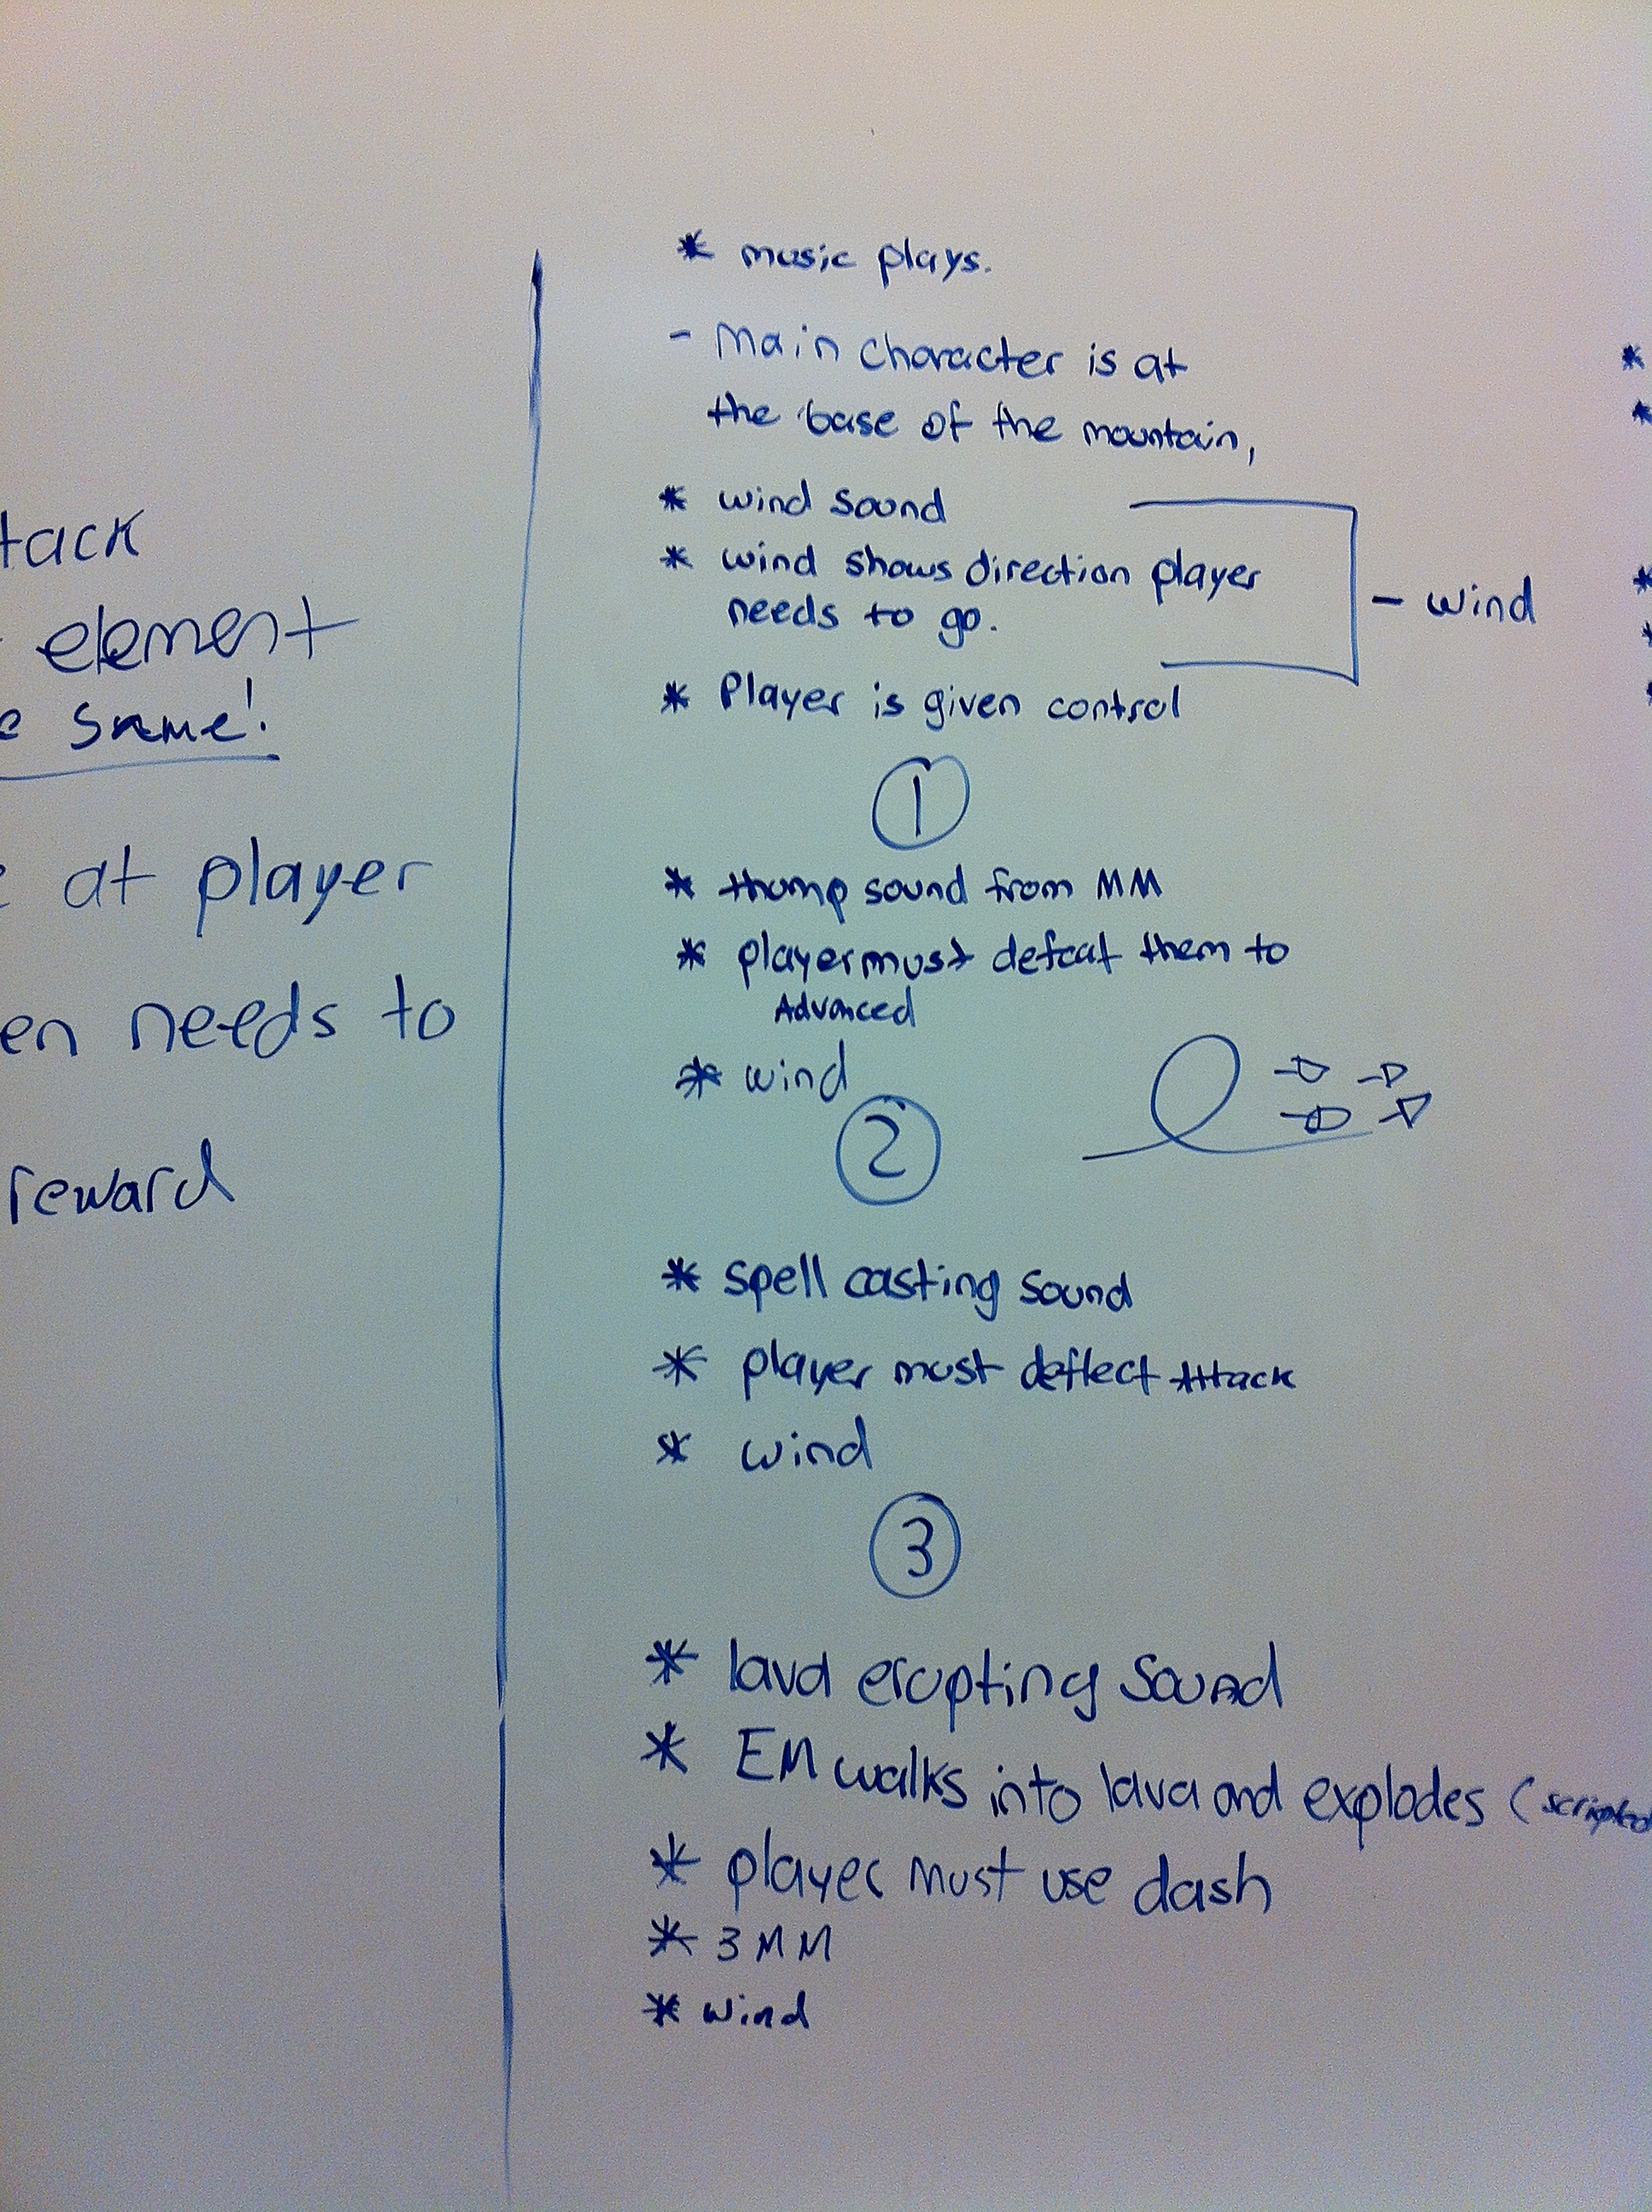 tack
element
same!
at player
en needs to
reward
* music plays.
- Main character is at
the base of the mountain,
* wind sound
* wind shows direction player
needs to go.
- wind
* Player is given control
1
* thump sound from MM
* player must defeat them to
Advanced
* wind
2
* spell casting sound
* player must deflect attack
* wind
3
* lava erupting sound
* EM walks into lava and explodes (scripted
* player must use dash
* 3 MM
* wind